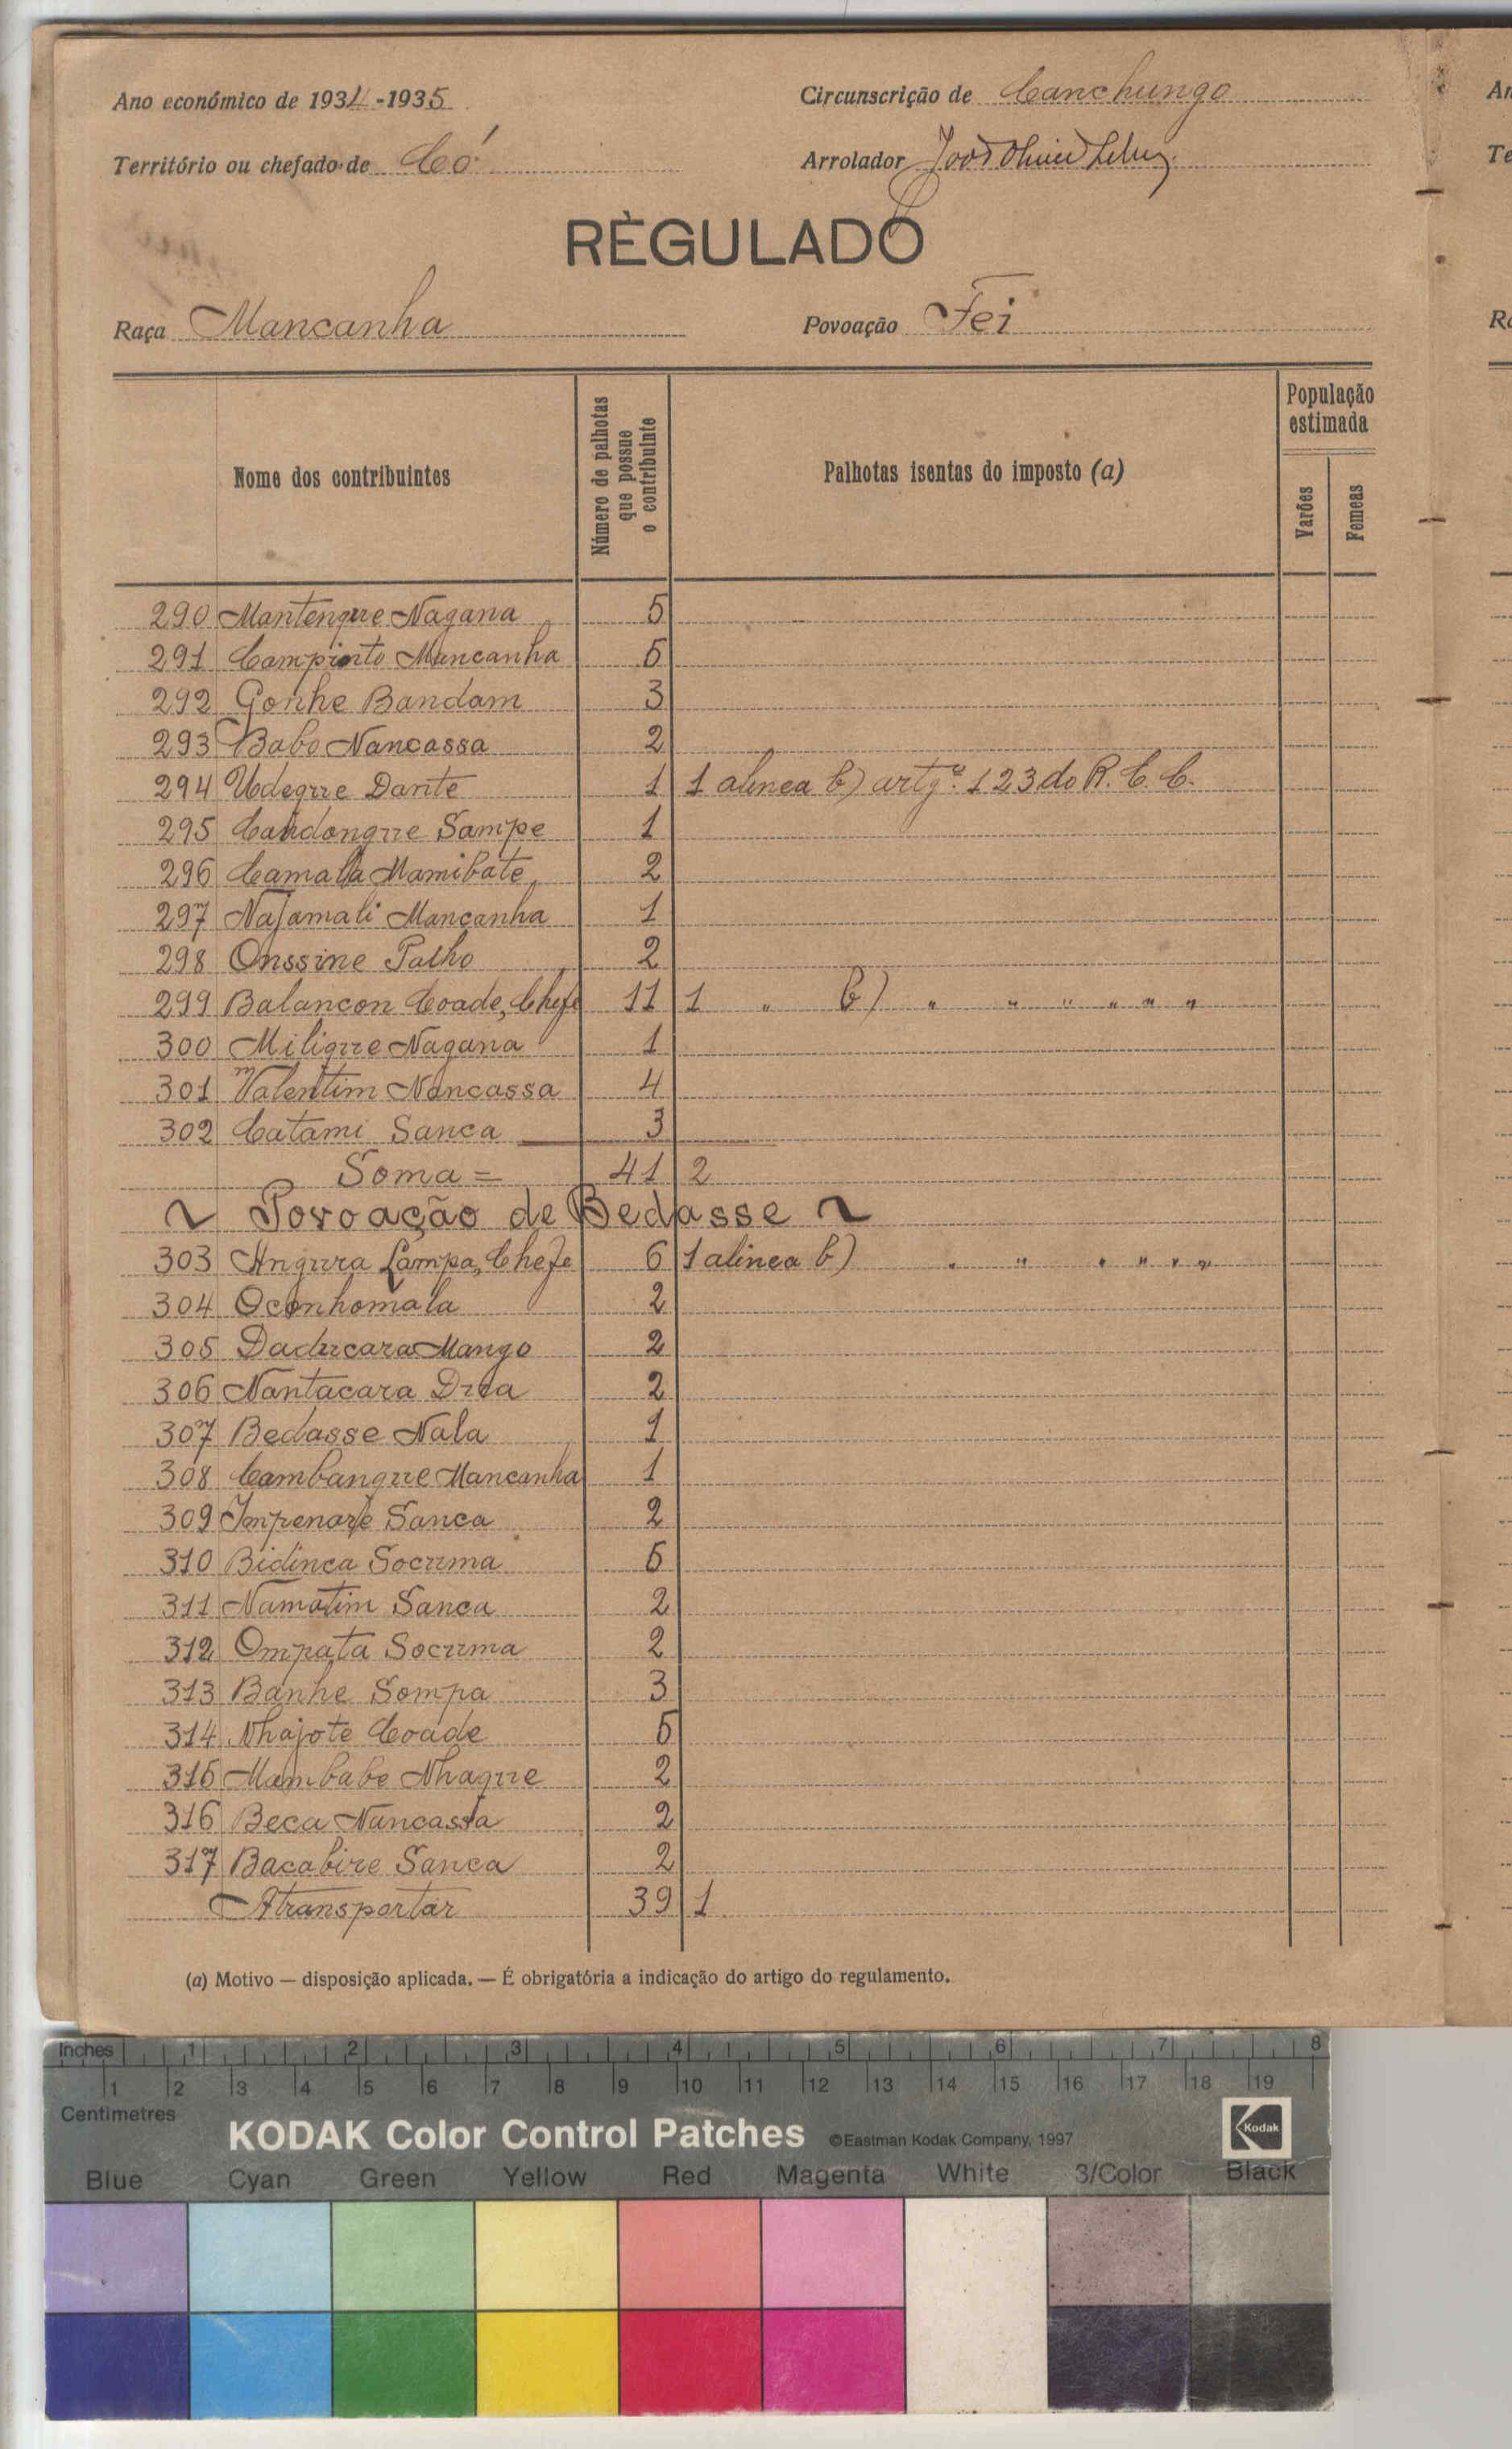 Ano económico de 1934-1935
Circunscrição de Canchungo
Território ou chefado de Có
Arrolador
RÈGULADO
Raça Mancanha
Povoação Fei
Nome dos contribuintes
Número de palhotas que possue o contribuinte
Palhotas isentas do imposto (a)
População estimada
Varões
Femeas
290 Mantengue Nagana 5
291 Campinto Mancanha 5
292 Gonhe Bandam 3
293 Babo Nancassa 2
294 Udegue Dante 1 1 alinea b) artgº. 123 do R. C. C.
295 Candongue Sampe 1
296 Camala Mamibate 2
297 Najamali Mancanha 1
298 Onssine Palho 2
299 Balancon Coade, Chefe 11 1 " b) " " " " " "
300 Miligue Nagana 1
301 Valentim Nancassa 4
302 Catami Sanca 3
Soma = 41 2
~ Povoação de Bedasse ~
303 Angura Lampa, Chefe 6 1 alinea b) " " " " " "
304 Oconhomala 2
305 Daducara Mango 2
306 Nantacara 2
307 Bedasse Nala 1
308 Cambangue Mancanha 1
309 Impenare Sanca 2
310 Bidinca Socuma 5
311 Namatim Sanca 2
312 Ompata Socuma 2
313 Banhe Sompa 3
314 Nhajote Coade 5
315 Mambabo Nhague 2
316 Beca Nancassa 2
317 Bacabire Sanca 2
A transportar 39 1
(a) Motivo — disposição aplicada. — É obrigatória a indicação do artigo do regulamento.
Inches 1 2 3 4 5 6 7 8
1 2 3 4 5 6 7 8 9 10 11 12 13 14 15 16 17 18 19
Centimetres
KODAK Color Control Patches ©Eastman Kodak Company, 1997 Kodak
Blue Cyan Green Yellow Red Magenta White 3/Color Black